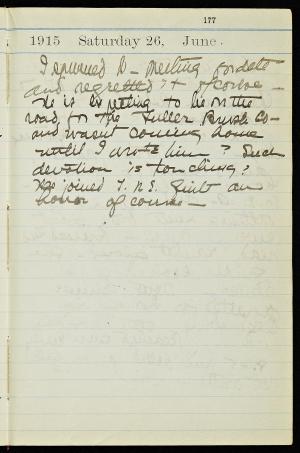 177
1915 Saturday 26, June.
I spurned B— meeting for date
and regretted it of course —
He is expecting to be on the
road for the Fuller Brush Co—
and wasn't coming home
until I wrote him? Such
devotion is touching?
He joined T. N. E. Quite an
honor of course —